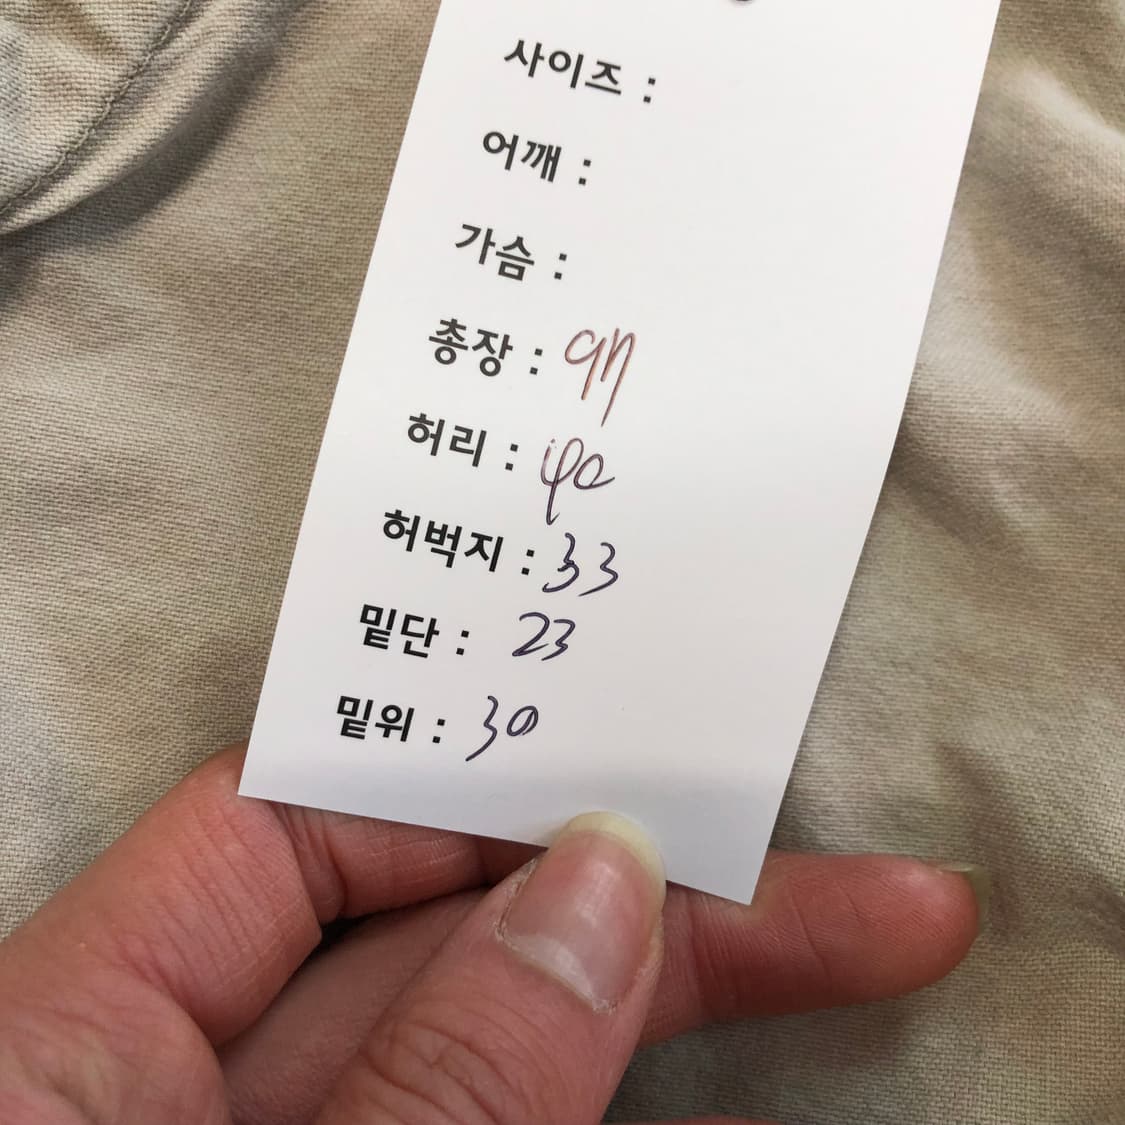 사이즈 :
어깨 :
가슴 :
총장 : 97
허리 :
허벅지 : 33
밑단 : 23
밑위 : 30